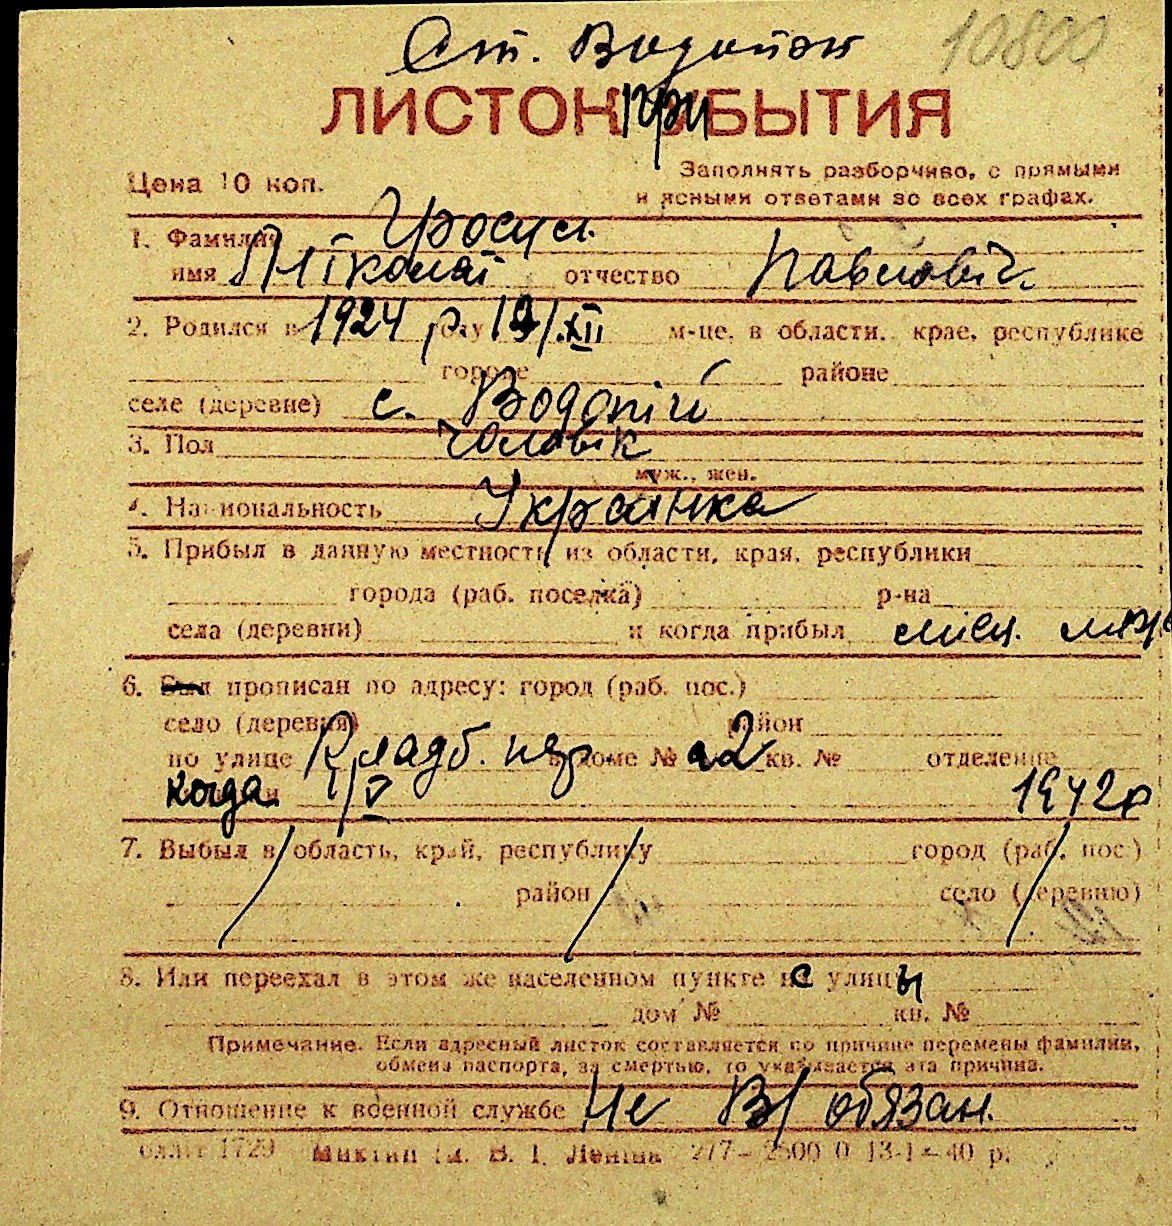 Ст. Водопой 10800
ЛИСТОК ПРИБЫТИЯ
Цена 10 коп.
Заполнять разборчиво, с прямыми
и ясными ответами во всех графах.
1. Фамилия Гросул
имя Ніколай отчество Павловіч.
2. Родился в 1924 р. году 19/XII м-це, в области, крае, республике
городе районе
селе (деревне) с. Водопій
3. Пол чоловік
муж., жен.
4. Национальность Українка
5. Прибыл в данную местность из области, края, республики
города (раб. поселка) р-на
села (деревни) и когда прибыл
6. Был прописан по адресу: город (раб. пос.)
село (деревня) район
по улице Кладб. пер. в доме № 22 кв. № отделение
когда 1/V 1942 р
7. Выбыл в область, край, республику город (раб. пос.)
район село (деревню)
8. Или переехал в этом же населенном пункте с улицы
дом № кв. №
Примечание. Если адресный листок составляется по причине перемены фамилии,
обмена паспорта, за смертью, то указывается эта причина.
9. Отношение к военной службе Не В/обязан.
1729 ім. В. І. Леніна 277 – 2500 0 13-1–40 р.